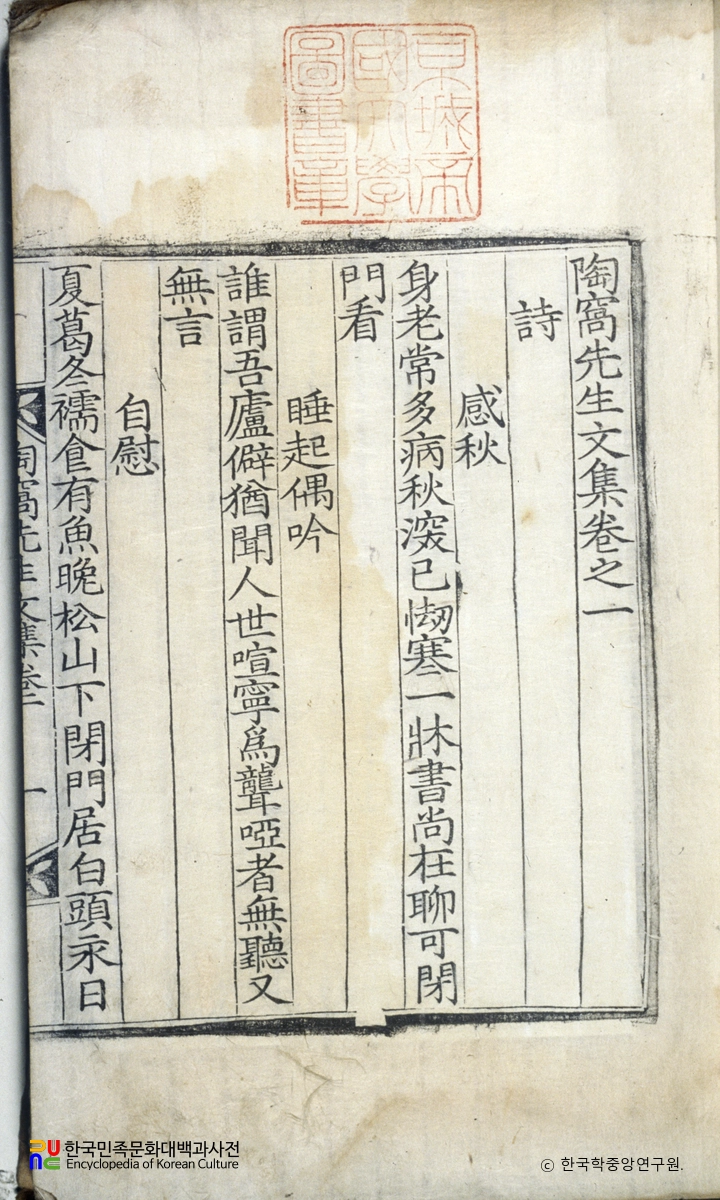 京城帝
國大學
圖書章
陶窩先生文集卷之一
詩
感秋
身老常多病秋深已㥘寒一牀書尚在聊可閉
門看
睡起偶吟
誰謂吾廬僻猶聞人世喧寧爲聾啞者無聽又
無言
自慰
夏葛冬襦食有魚晩松山下閉門居白頭永日
陶窩先生文集卷一
一
한국민족문화대백과사전
Encyclopedia of Korean Culture
ⓒ 한국학중앙연구원.